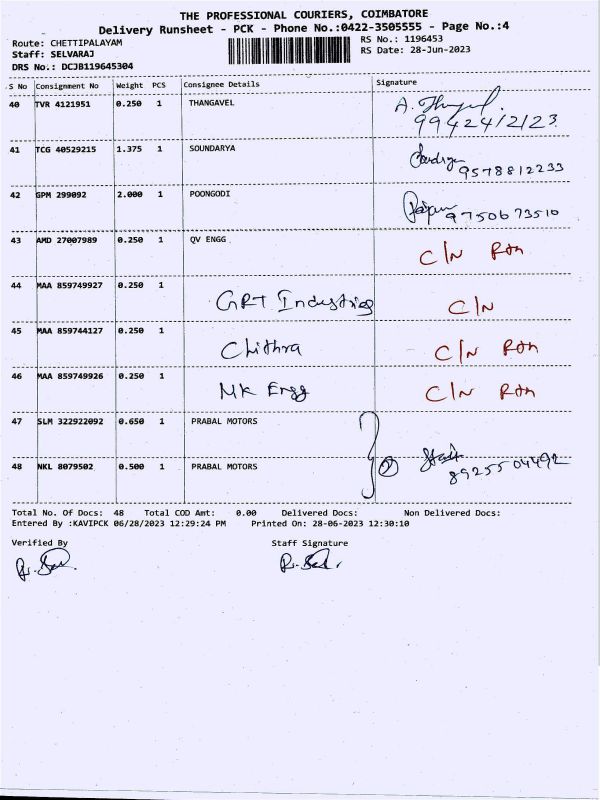 THE PROFESSIONAL COURIERS, COIMBATORE
Delivery Runsheet - PCK - Phone No.:0422-3505555 - Page No.:4
Route: CHETTIPALAYAM
RS No.: 1196453
Staff: SELVARAJ
RS Date: 28-Jun-2023
DRS No.: DCJB119645304
S No Consignment No Weight PCS Consignee Details Signature
40 TVR 4121951 0.250 1 THANGAVEL
9942412123
41 TCG 40529215 1.375 1 SOUNDARYA
9578812233
42 GPM 299092 2.000 1 POONGODI
9750673510
43 AMD 27007989 0.250 1 QV ENGG C/N Rtn
44 MAA 859749927 0.250 1 GRT Industries C/N
45 MAA 859744127 0.250 1 Chithra C/N Rtn
46 MAA 859749926 0.250 1 MK Engg C/N Rtn
47 SLM 322922092 0.650 1 PRABAL MOTORS
48 NKL 8079502 0.500 1 PRABAL MOTORS 2 8925504492
Total No. Of Docs: 48 Total COD Amt: 0.00 Delivered Docs: Non Delivered Docs:
Entered By :KAVIPCK 06/28/2023 12:29:24 PM Printed On: 28-06-2023 12:30:10
Verified By Staff Signature